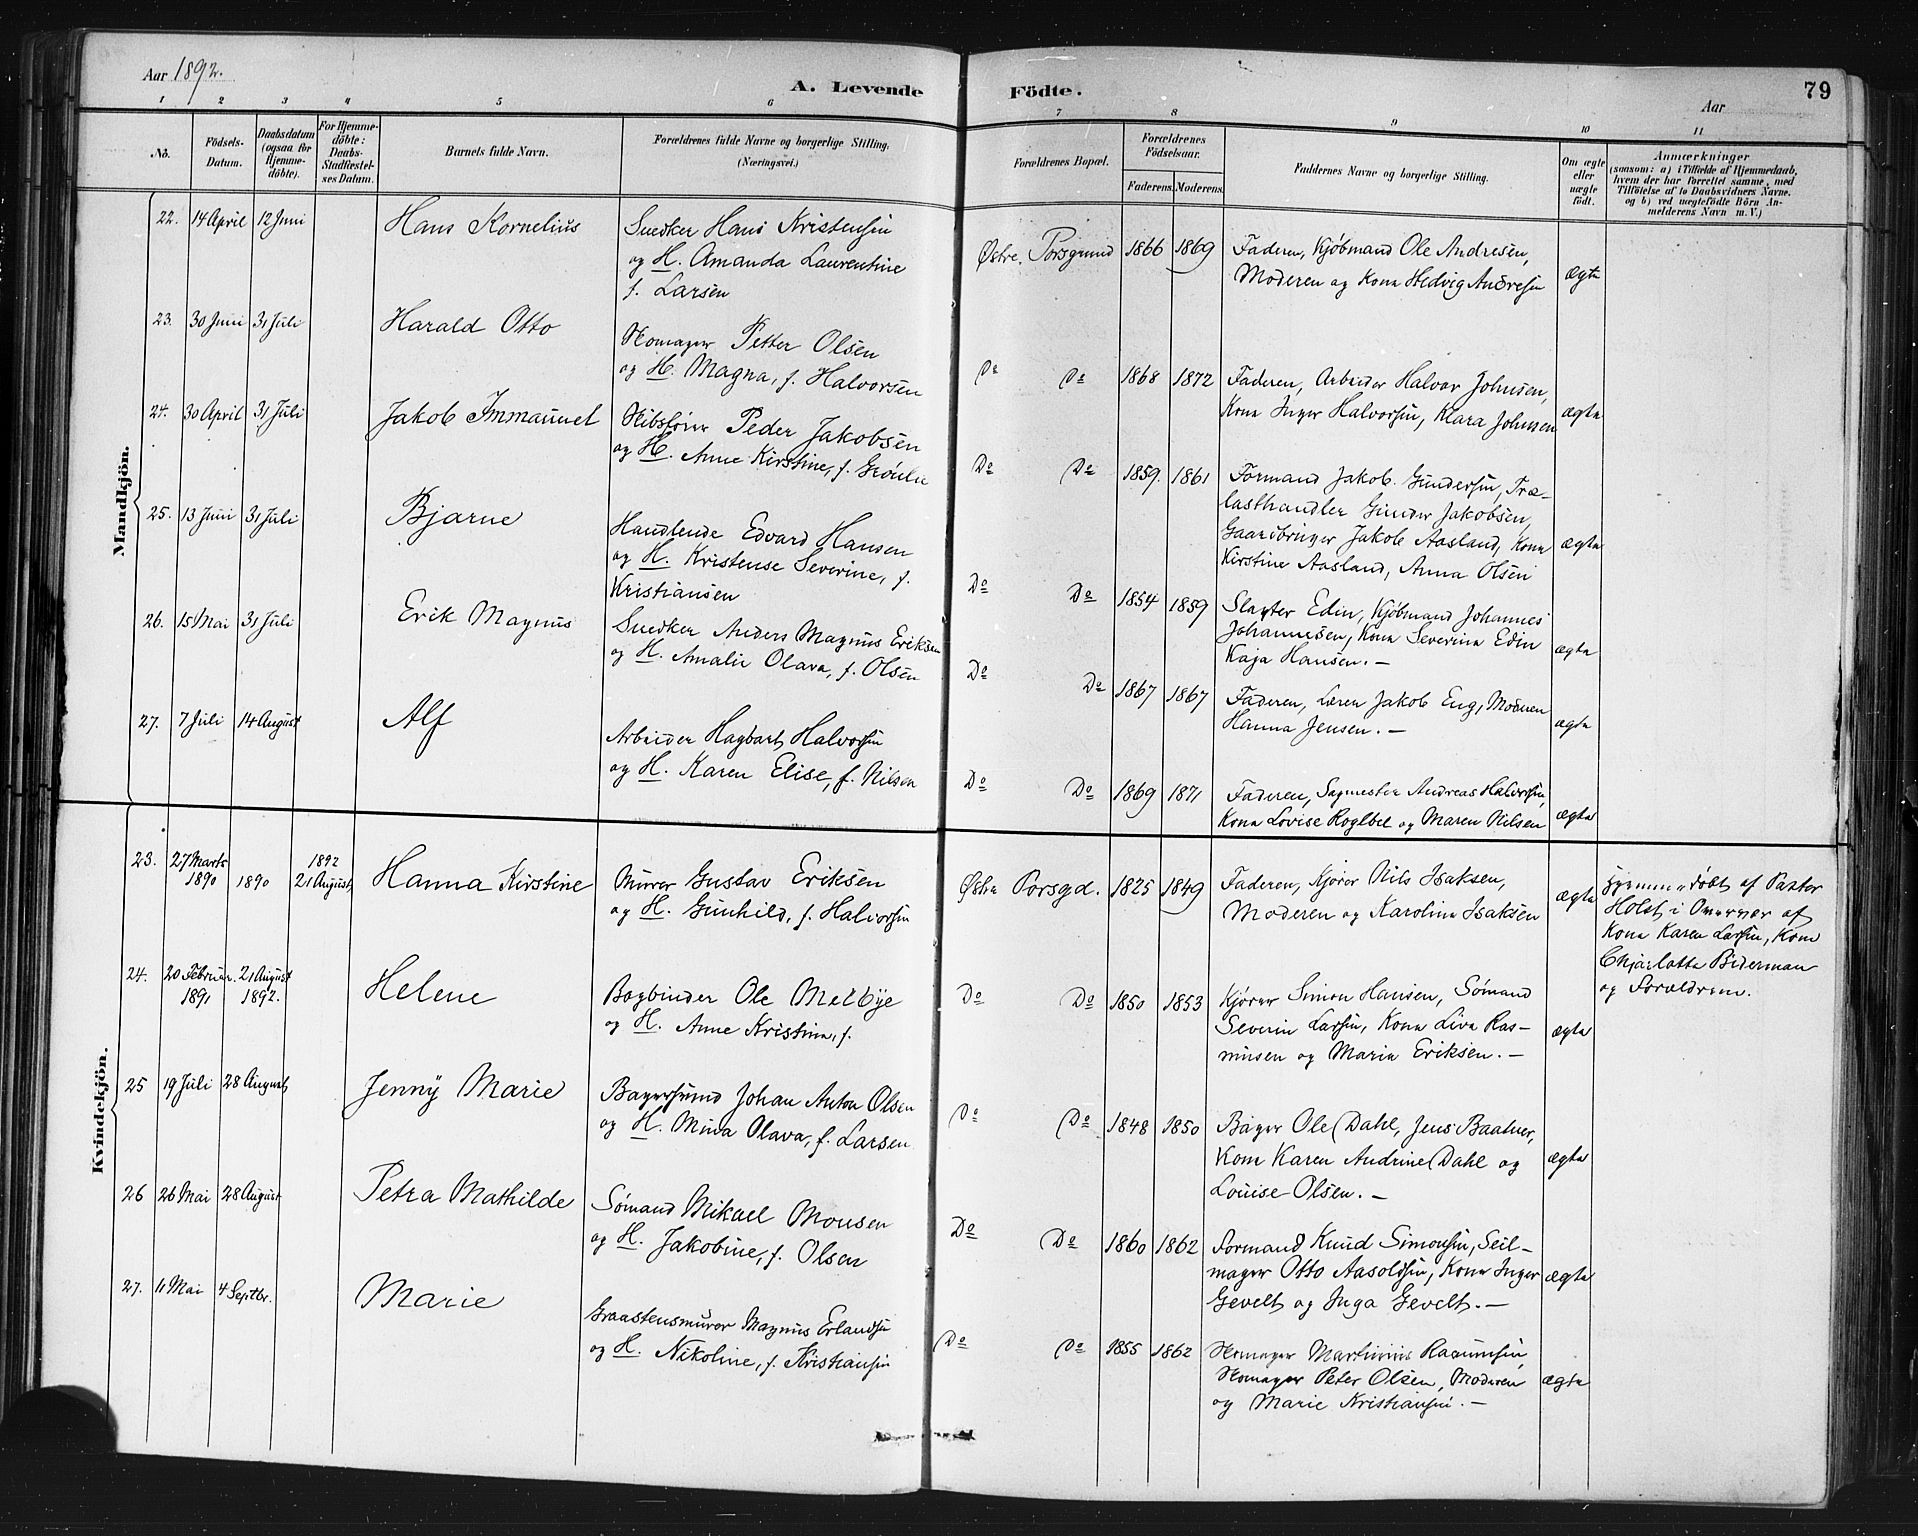 Aar 1892.
A. Levende Födte.
79
Aar
1 2 3 4 5 6 7 8 9 10 11
No.
Födsels-Datum.
Daabsdatum (ogsaa for Hjemme-döbte).
For Hjemme-döbte: Daabs-Stadfæstel-ses Datum.
Barnets fulde Navn.
Forældrenes fulde Navne og borgerlige Stilling. (Næringsvei.)
Forældrenes Bopæl.
Forældrenes Födselsaar.
Faderens. Moderens.
Faddernes Navne og borgerlige Stilling.
Om ægte eller uægte födt.
Anmærkninger
(saasom: a) i Tilfælde af Hjemmedaab, hvem der har forrettet samme, med Tilföielse af to Daabsvidners Navne. og b) ved uægtefödte Börn An-melderens Navn m. V.)
Mandkjön.
22. 14 April 12 Juni Hans Kornelius Snedker Hans Kristensen
og H. Amanda Laurentine
f. Larsen
Østre Porsgrund 1866 1869 Faderen, Kjøbmand Ole Andresen,
Moderen og Kone Hedvig Andresen ægte
23. 30 Juni 31 Juli Harald Otto
Skomager Petter Olsen
og H. Magna, f. Halvorsen
Do Do 1868 1872 Faderen, Arbeider Halvor Johnsen,
Kone Inger Halvorsen, Klara Johnsen ægte
24. 30 April 31 Juli Jakob Immanuel Skibsfører Peder Jakobsen
og H. Anne Kirstine, f.
Do Do 1859. 1861 Formand Jakob Gundersen, Træ-
lasthandler Gunder Jakobsen,
Gaardbruger Jakob Aasland, Kone
Kirstine Aasland, Anna Olsen ægte
25. 13 Juni 31 Juli Bjarne
Handlende Edvard Hansen
og H. Kristense Severine, f.
Kristiansen
Do Do 1854 1859 Slagter Edin, Kjøbmand Johannes
Johannesen, Kone Severine Edin
Kaja Hansen. — ægte
26. 15 Mai 31 Juli Erik Magnus
Snedker Anders Magnus Eriksen
og H. Amalie Olava, f. Olsen
Do Do 1867 1867 Faderen, Jakob Eng, Moderen
Hanna Jensen. — ægte
27. 7 Juli 14 August Alf
Arbeider Hagbart Halvorsen
og H. Karen Elise, f. Nilsen
Do Do 1869 1871 Faderen, Sagmester Andreas Halvorsen,
Kone Lovise og Maren Nilsen ægte
Kvindekjön.
23. 27 Marts 1890 1890 1892 21 August Hanna Kirstine Murer Gustav Eriksen
og H. Gunhild, f. Halvorsen
Østre Porsgd. 1825 1849 Faderen, Kjører Nils Isaksen,
Moderen og Karoline Isaksen ægte
Hjemmedøbt af Pastor
Holst i Overvær af
Kone Karen Larsen, Kone
Chjarlotte Biderman
og Forældrene.
24. 20 Februar 1891 21 August 1892. Helene
Bogbinder Ole Melbye
og H. Anne Kristine, f.
Do Do 1850 1853 Kjører Simon Hansen, Sømand
Severin Larsen, Kone Liva Ras-
musen og Maria Eriksen. — ægte
25 19 Juli 28 August Jenny Marie
Bagersvend Johan Anton Olsen
og H. Mina Olava, f. Larsen
Do Do 1848 1850 Bager Ole Dahl, Jens Baatner,
Kone Karen Andrine Dahl og
Louise Olsen. — ægte
26 26 Mai 28 August Petra Mathilde
Sømand Mikael Monsen
og H. Jakobine, f. Olsen
Do Do 1860 1862 Formand Knud Simonsen, Seil-
mager Otto Aasoldsen, Kone Inger
Gevelt og Inga Gevelt. — ægte
27. 11 Mai 4 Septbr. Marie
Graastensmurer Magnus Erlandsen
og H. Nikoline, f. Kristiansen
Do Do 1855 1862 Skomager Martinius Rasmusen,
Skomager Peter Olsen, Moderen
og Marie Kristiansen. — ægte